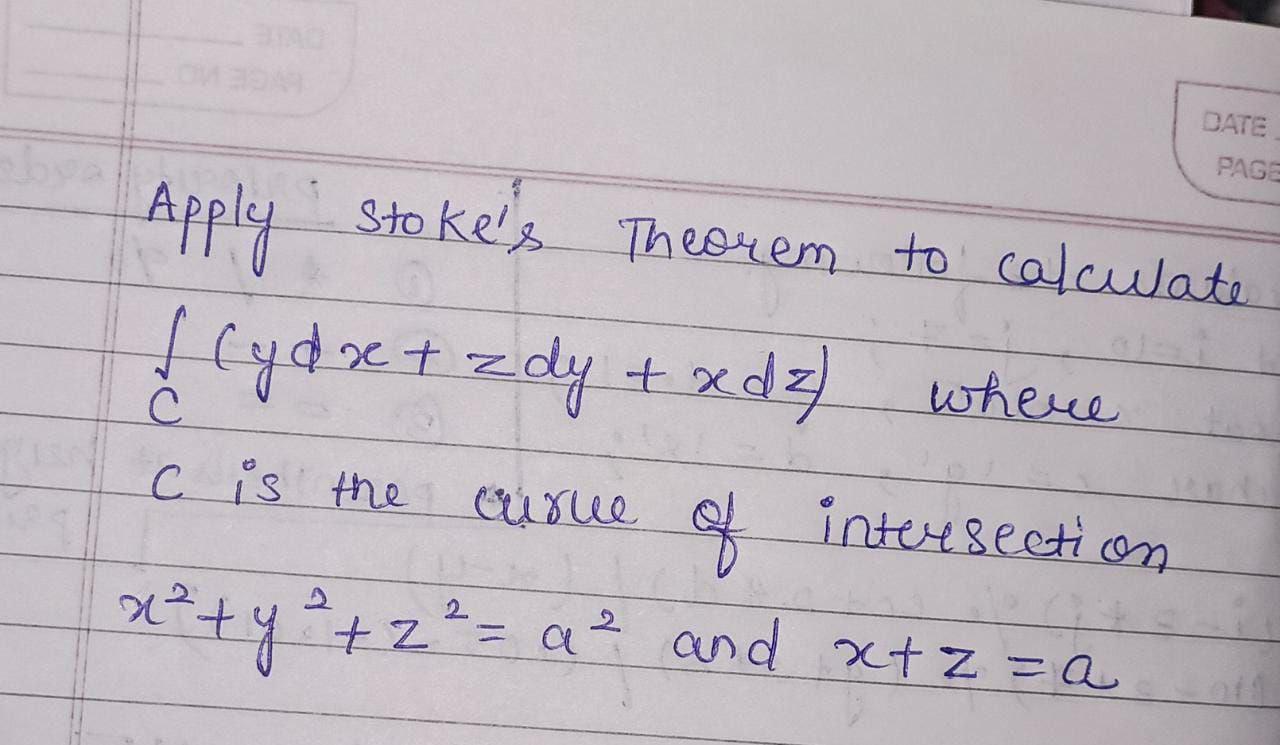 DATE
PAGE NO
DATE
PAGE
Apply Stoke's Theorem to calculate
∫ (ydx + zdy + xdz) where
C
C is the curve of intersection
x² + y² + z² = a² and x + z = a